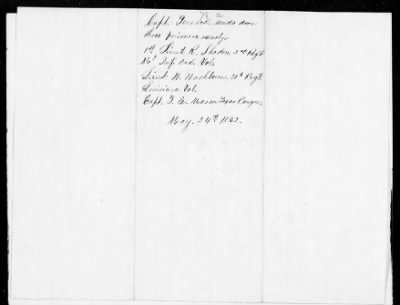 Capt. sends down
three prisoners namely
1st Lieut R. 2nd Regt
Inf. Vols
Lieut W. Washburn 20th Regt
Louisiana Vol.
Capt. T. W. Mason Texas Rangers
May. 24th 1862.